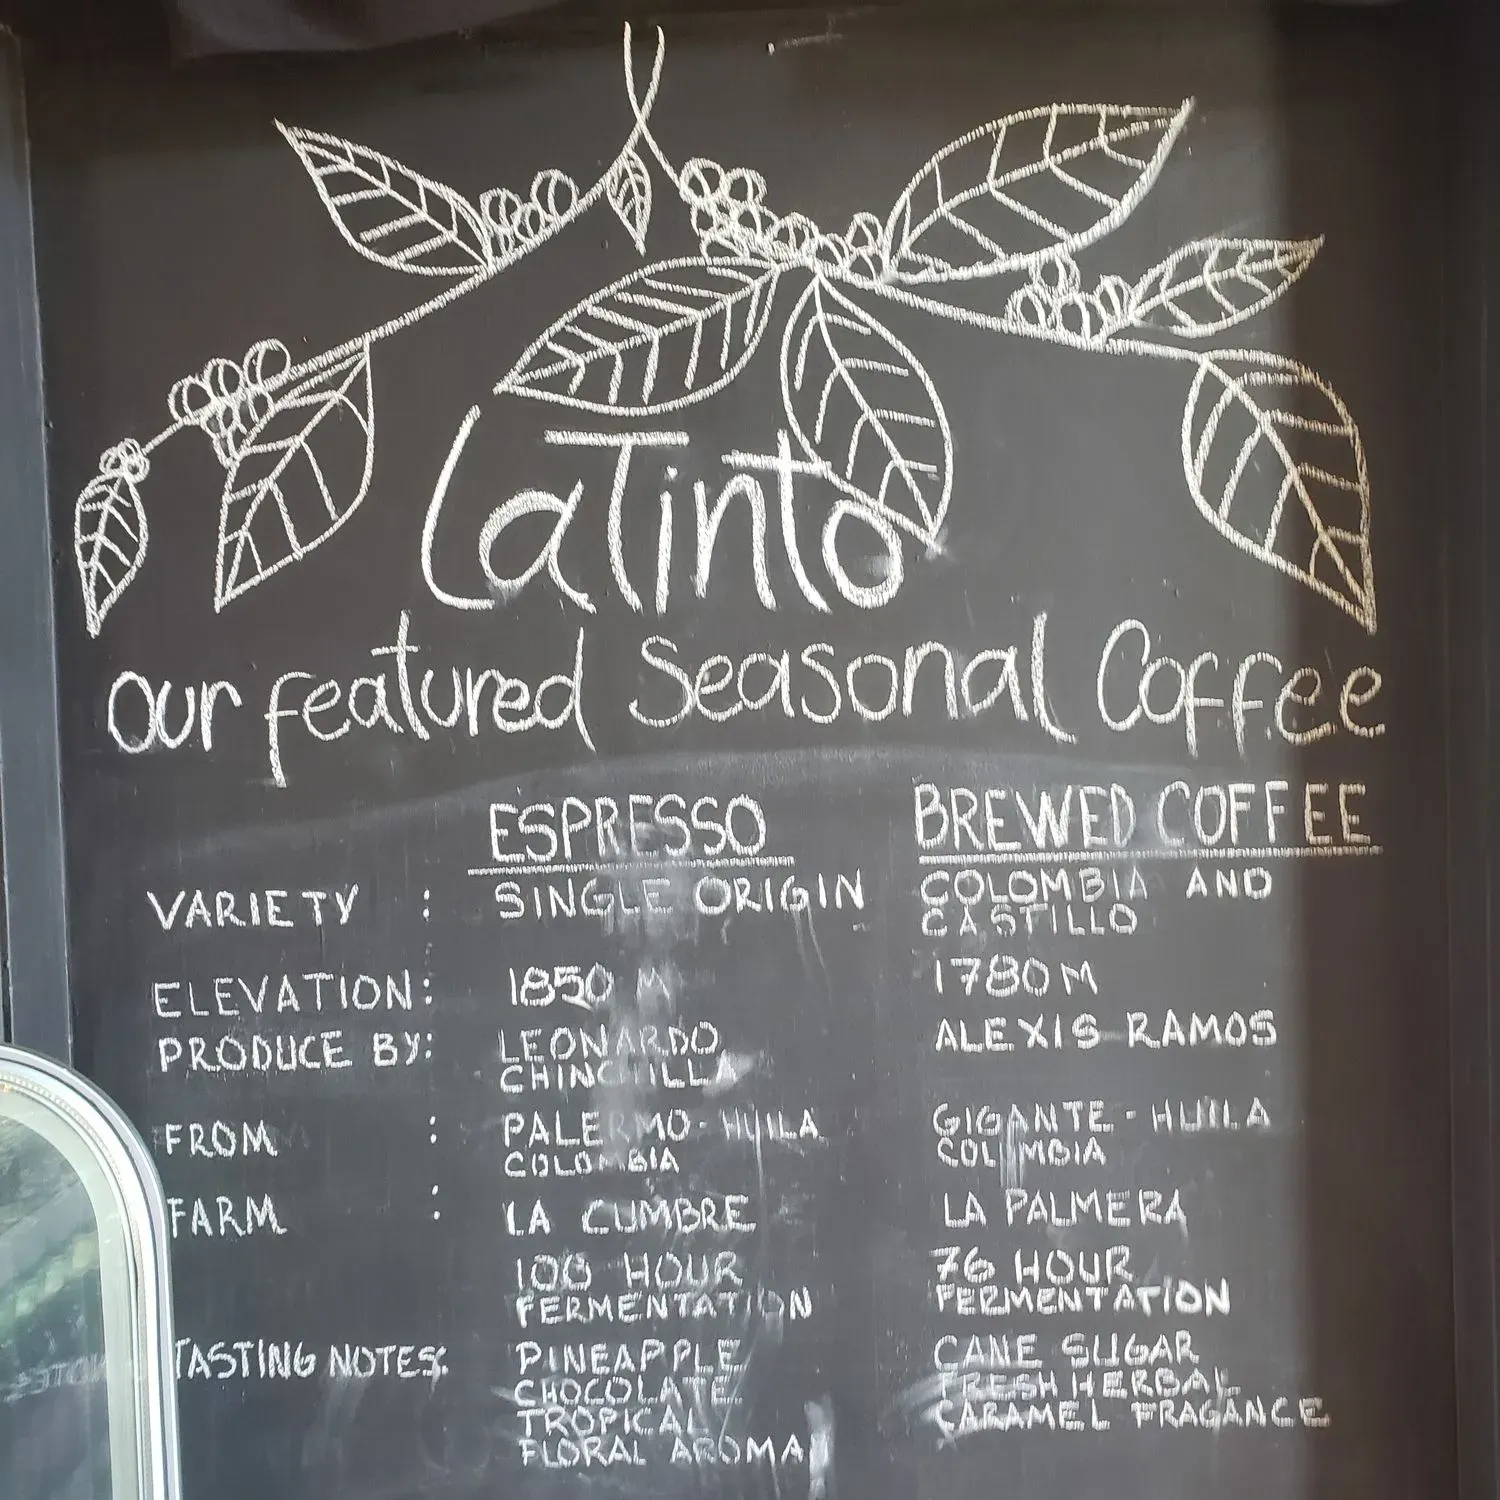 LaTinto
Our featured Seasonal Coffee
ESPRESSO BREWED COFFEE
VARIETY : SINGLE ORIGIN COLOMBIA AND
CASTILLO
ELEVATION: 1850 M 1780 M
PRODUCE BY: LEONARDO ALEXIS RAMOS
CHINCHILLA
FROM : PALERMO-HUILA GIGANTE-HUILA
COLOMBIA COLOMBIA
FARM : LA CUMBRE LA PALMERA
HOUR 76 HOUR
FERMENTATION FERMENTATION
TASTING NOTES: PINEAPPLE CANE SUGAR
CHOCOLATE FRESH HERBAL
TROPICAL CARAMEL FRAGANCE
FLORAL AROMA